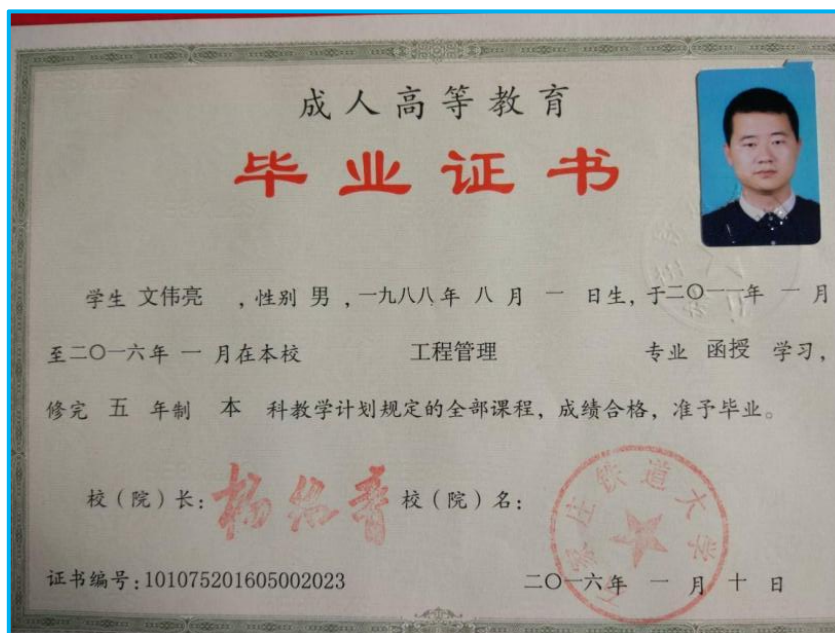 成人高等教育
毕业证书
学生 文伟亮 ，性别 男 ，一九八八年 八 月 一 日生，于二〇一一年 一 月
至二〇一六年 一 月在本校 工程管理 专业 函授 学习，
修完 五 年制 本 科教学计划规定的全部课程，成绩合格，准予毕业。
校（院）长： 校（院）名：
石家庄铁道大学
证书编号：101075201605002023 二〇一六年 一 月 十 日